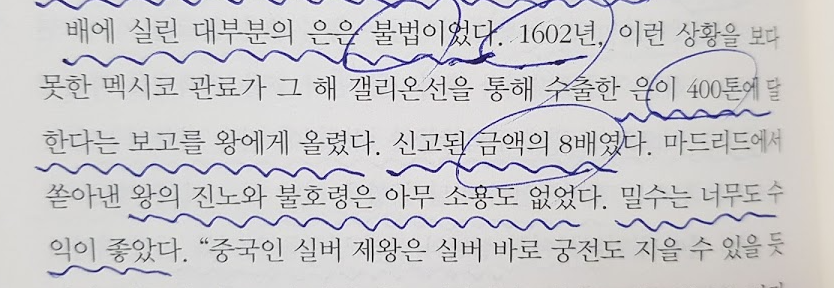 배에 실린 대부분의 은은 불법이었다. 1602년, 이런 상황을 보다
못한 멕시코 관료가 그 해 갤리온선을 통해 수출한 은이 400톤에 달
한다는 보고를 왕에게 올렸다. 신고된 금액의 8배였다. 마드리드에서
쏟아낸 왕의 진노와 불호령은 아무 소용도 없었다. 밀수는 너무도 수
익이 좋았다. “중국인 실버 제왕은 실버 바로 궁전도 지을 수 있을 듯